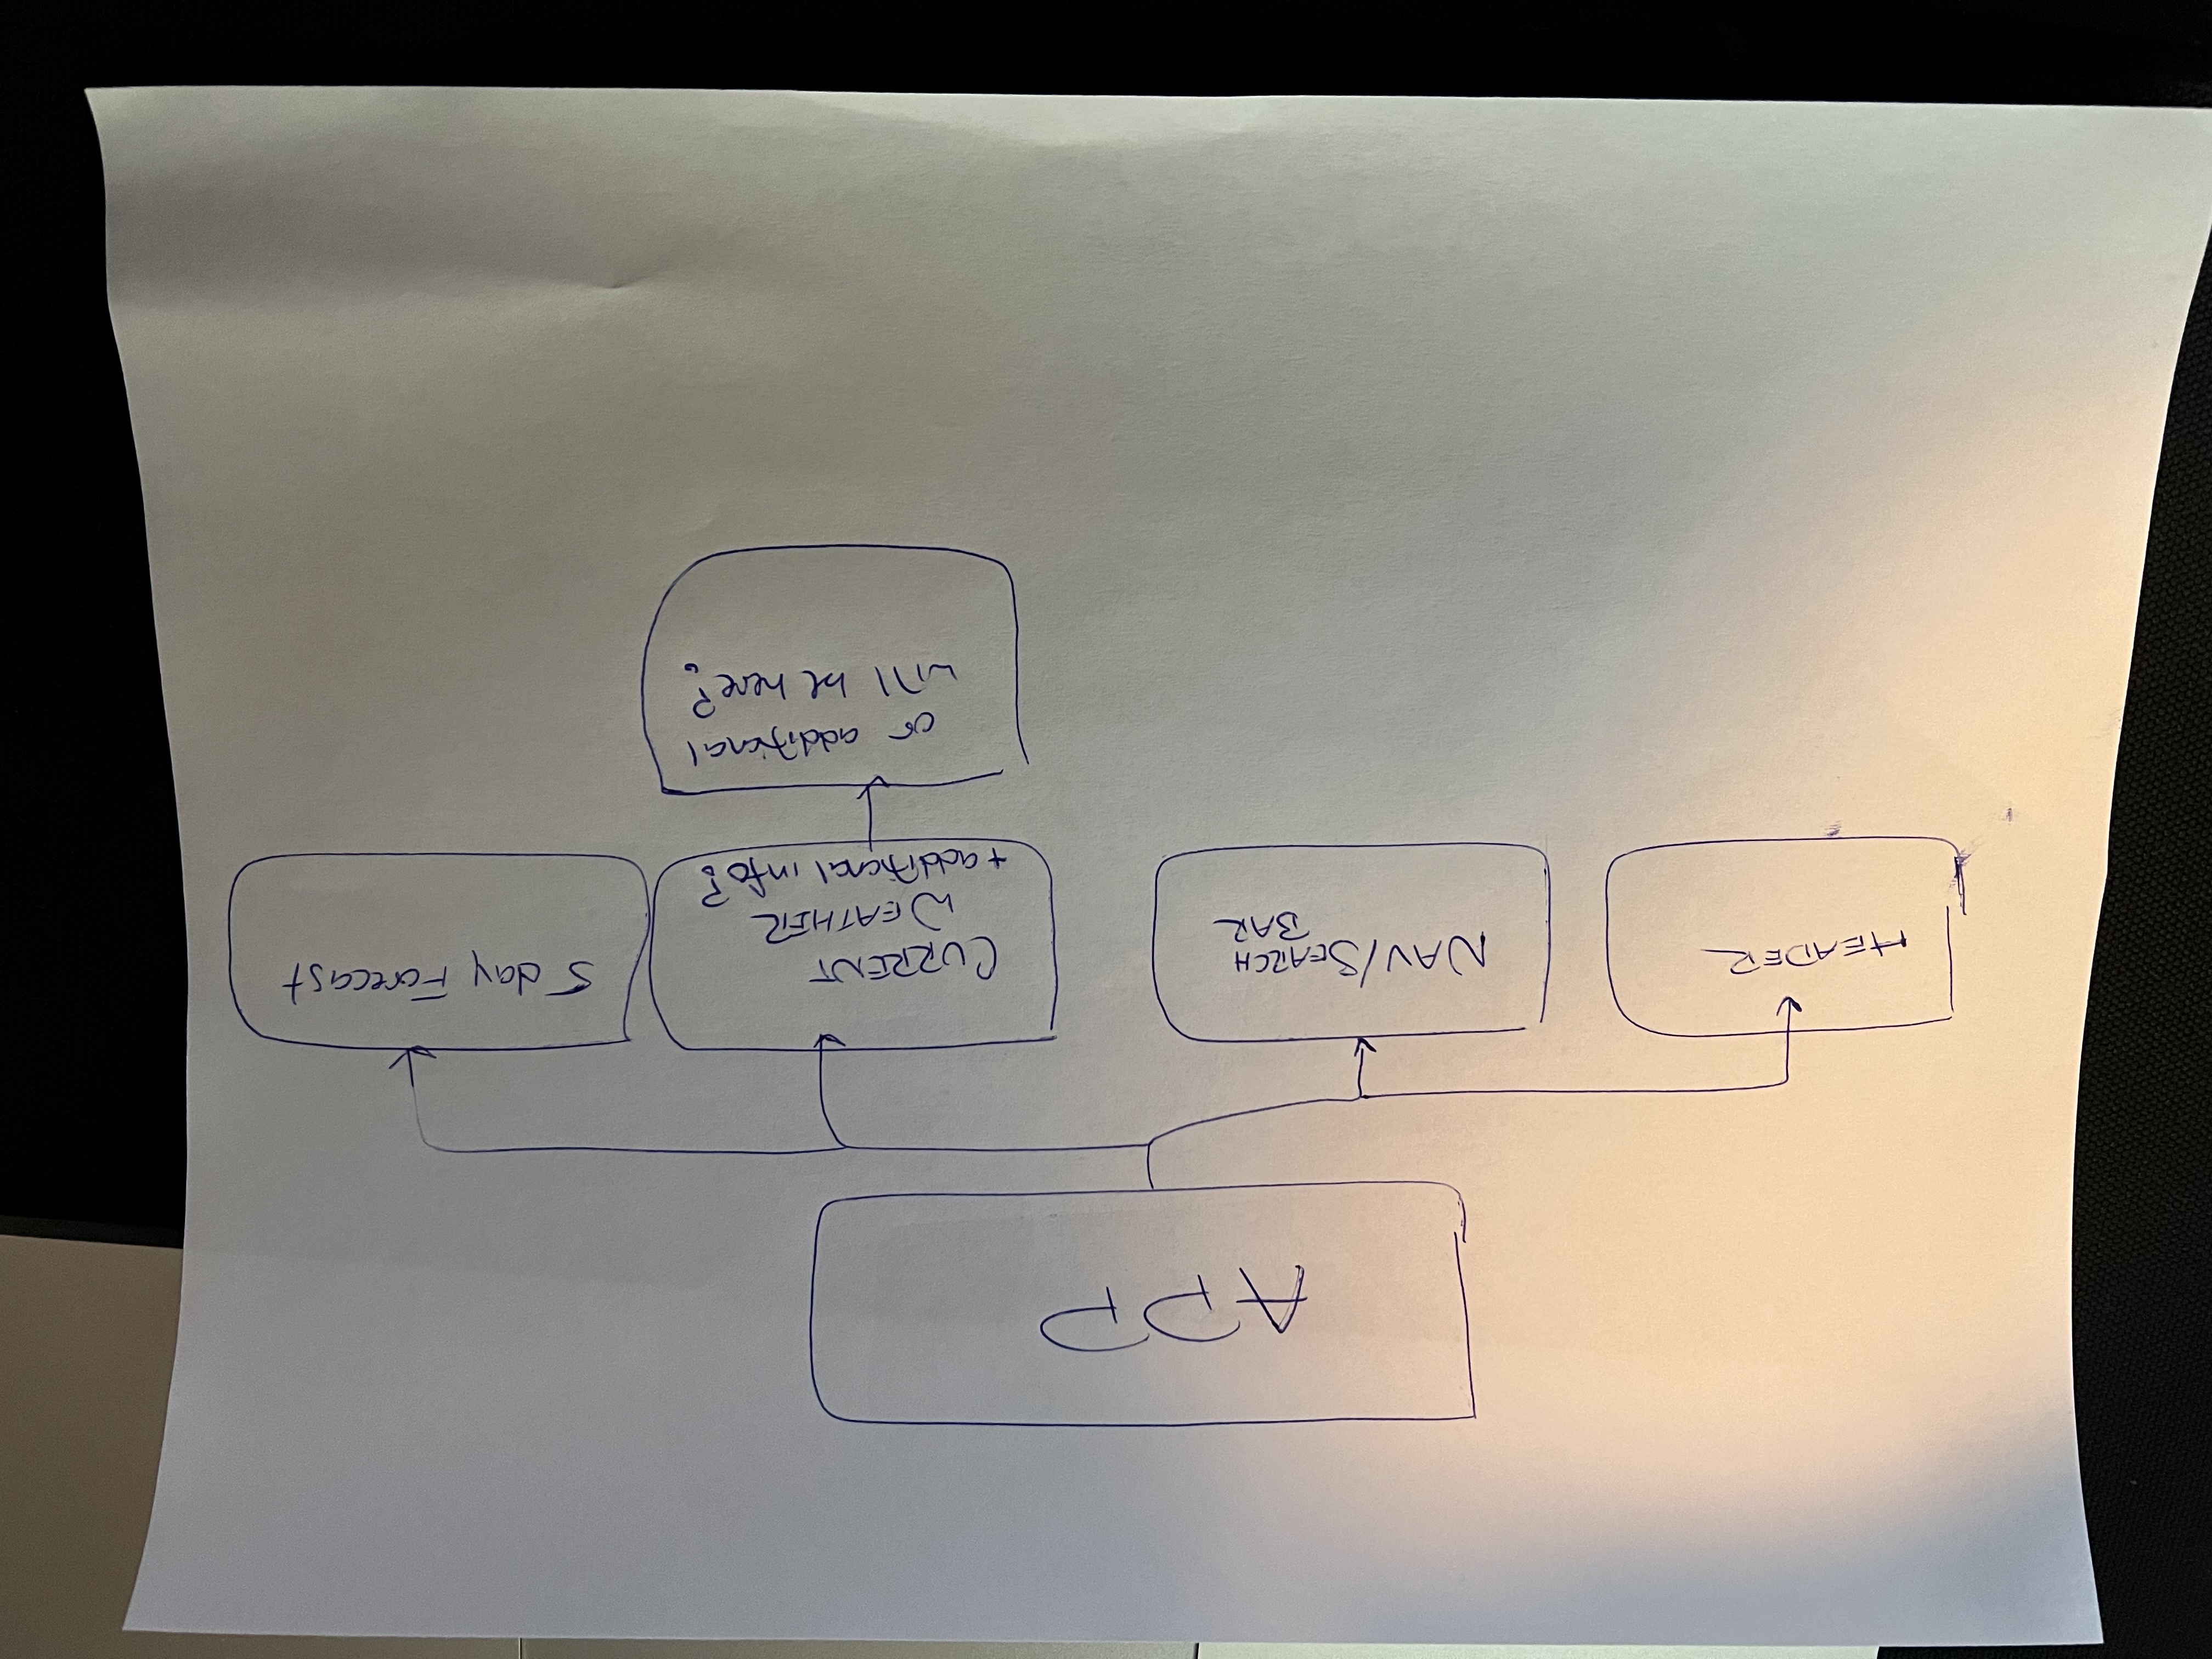 APP
HEADER
NAV/SEARCH
BAR
CURRENT
WEATHER
+ additional info?
5 day Forecast
or additional
will be here?